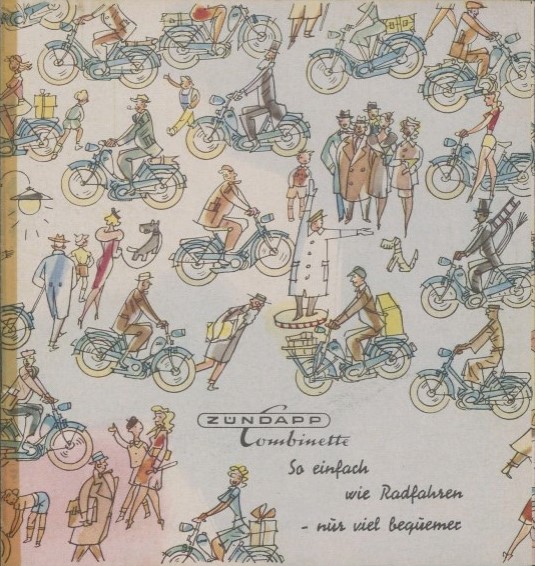 ZÜNDAPP
Combinette
So einfach
wie Radfahren
- nur viel bequemer